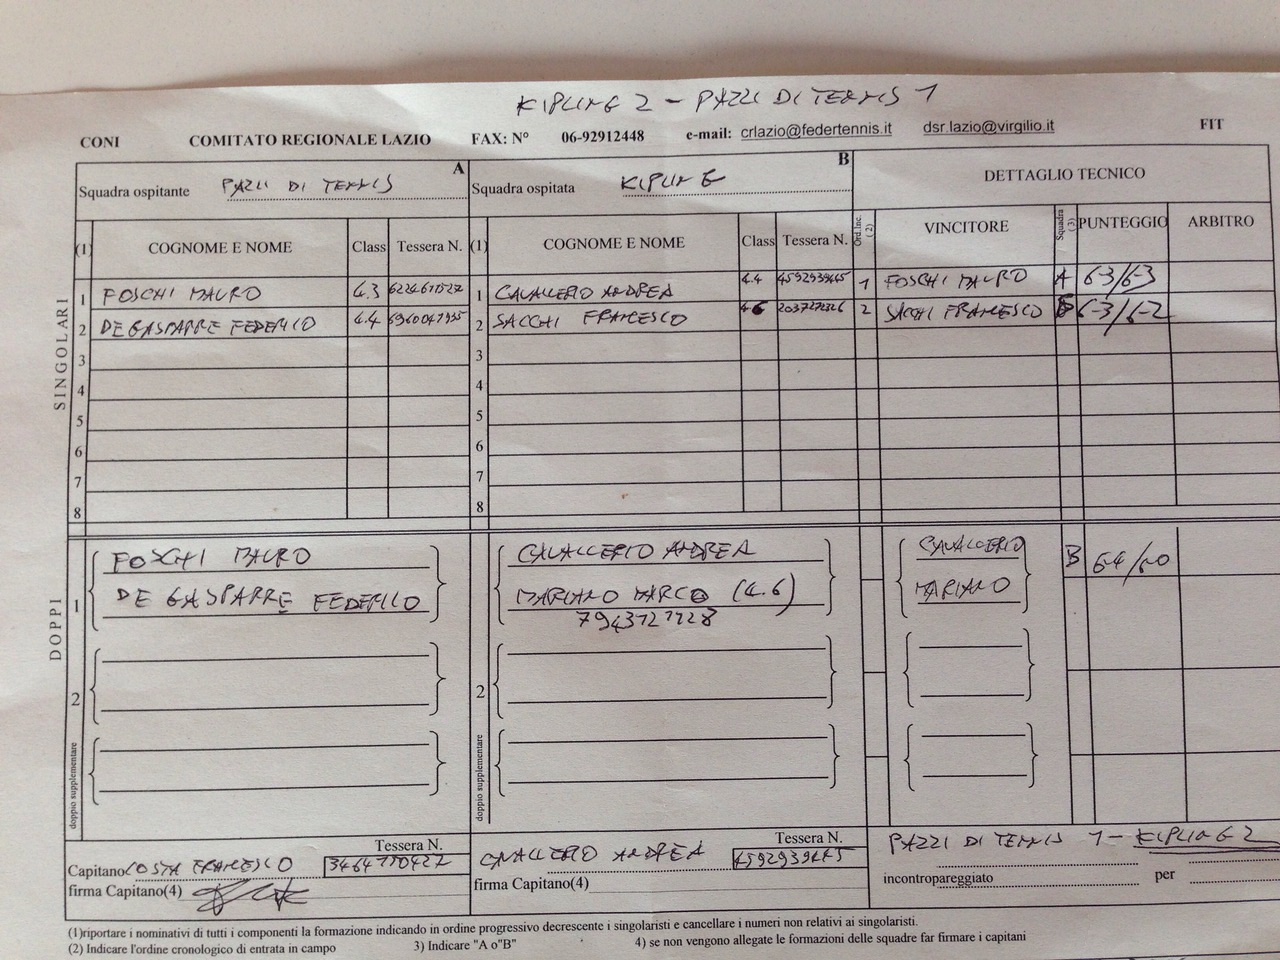 KIPLING 2 - PAZZI DI TENNIS 1
CONI COMITATO REGIONALE LAZIO FAX: N° 06-92912448 e-mail: crlazio@federtennis.it dsr.lazio@virgilio.it FIT
Squadra ospitante PAZZI DI TENNIS A Squadra ospitata KIPLING B DETTAGLIO TECNICO
(1) COGNOME E NOME Class Tessera N. (1) COGNOME E NOME Class Tessera N. Ord.Inc. (2) VINCITORE Squadra (3) PUNTEGGIO ARBITRO
SINGOLARI
1 FOSCHI MAURO 4.3 1 CAVALLERIO ANDREA 4.4 4592939445 1 FOSCHI MAURO A 6-3/6-3
2 DE GASPARRE FEDERICO 4.4 2 SACCHI FRANCESCO 4.6 2 SACCHI FRANCESCO B 6-3/6-2
3 3
4 4
5 5
6 6
7 7
8 8
DOPPI
1 FOSCHI MAURO CAVALLERIO ANDREA CAVALLERIO B 6-4/6-0
DE GASPARRE FEDERICO MARIANO MARCO (4.6) MARIANO
7943727728
2 2
doppio supplementare doppio supplementare
Tessera N. Tessera N. PAZZI DI TENNIS 1 - KIPLING 2
Capitano COSTA FRANCESCO 3464770427 CAVALLERIO ANDREA 4592939445
firma Capitano(4) firma Capitano(4) incontropareggiato per
(1)riportare i nominativi di tutti i componenti la formazione indicando in ordine progressivo decrescente i singolaristi e cancellare i numeri non relativi ai singolaristi.
(2) Indicare l'ordine cronologico di entrata in campo 3) Indicare "A o"B" 4) se non vengono allegate le formazioni delle squadre far firmare i capitani